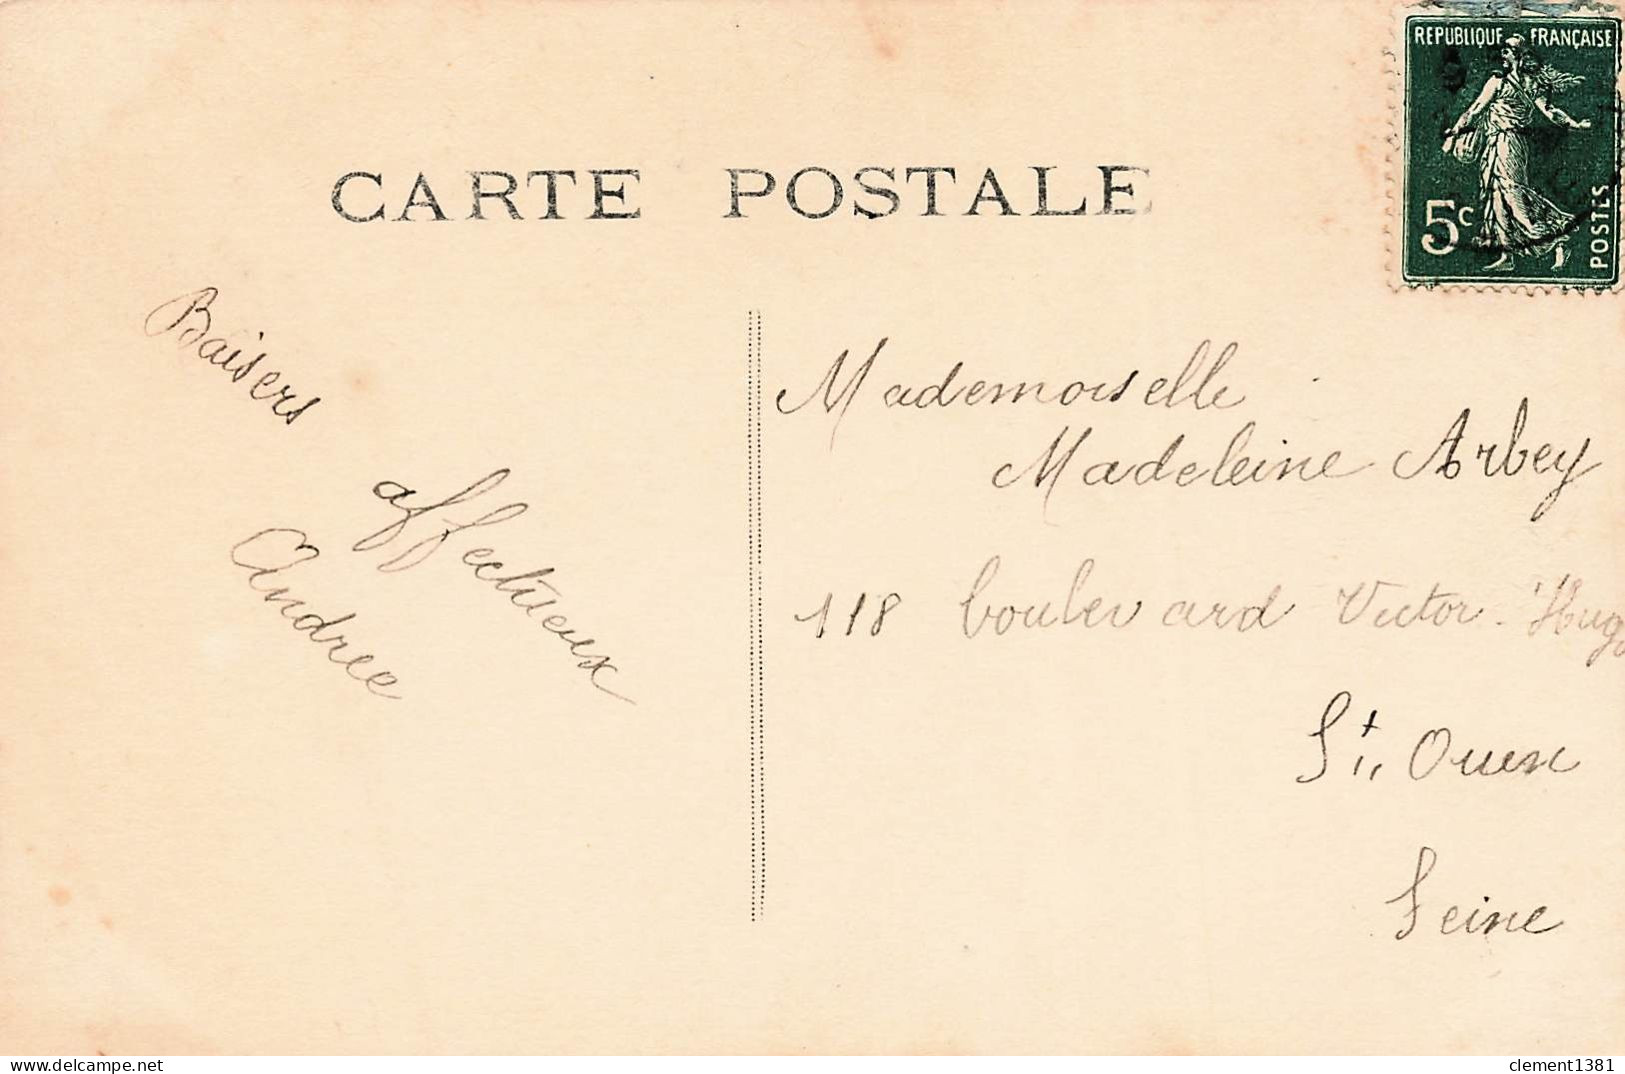 REPUBLIQUE FRANÇAISE
5c
POSTES
CARTE POSTALE
Baisers
affectueux
Andrée
Mademoiselle
Madeleine Arbey
118 boulevard Victor-Hugo
St. Ouen
Seine
delcampe.net
clement1381